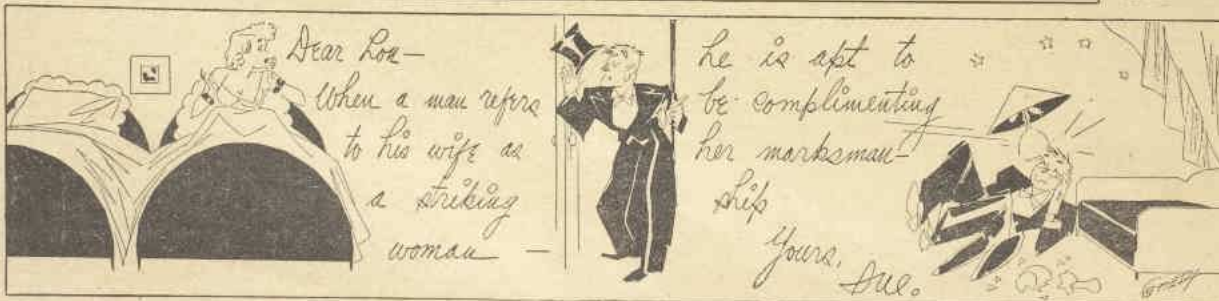 Dear Lou—
When a man refers
to his wife as
a striking
woman —
he is apt to
be complimenting
her marksman-
ship
Yours,
Sue.